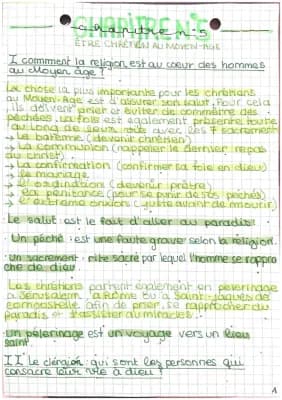 CHAPITRE N°5
ÊTRE CHRÉTIEN AU MOYEN-AGE
I comment la religion est au cœur des hommes
au Moyen âge ?
La chose la plus importante pour les chrétiens
au Moyen-Age est d'assurer son salut. Pour cela
ils doivent prier et éviter de commettre des
péchées. La fois est également présente toute
au long de leurs vie avec les 7 sacrement
→ Le baptême (devenir chrétien)
→ La communion (rappeler le dernier repas
du christ)
→ La confirmation (confirmer sa foie en dieu)
→ le mariage
→ l'ordination (devenir prêtre)
→ La pénitance (pour se punir de ses péchés)
→ l'extreme onction (juste avant de mourir)
Le salut : est le fait d'aller au paradis
Un péché : est une faute grave selon la religion.
un sacrement : rite sacré par lequel l'homme se rappro
che de dieu.
Les chrétiens partent également en pelerinage
à Jérusalem, à Rome ou à Saint-Jacques de
compostelle afin de prier, se rapprocher du
paradis et d'assister au miracles.
un pelerinage est un voyage vers un lieu
saint.
II Le clergion : qui sont les personnes qui
consacre leur vie à dieu ?
1